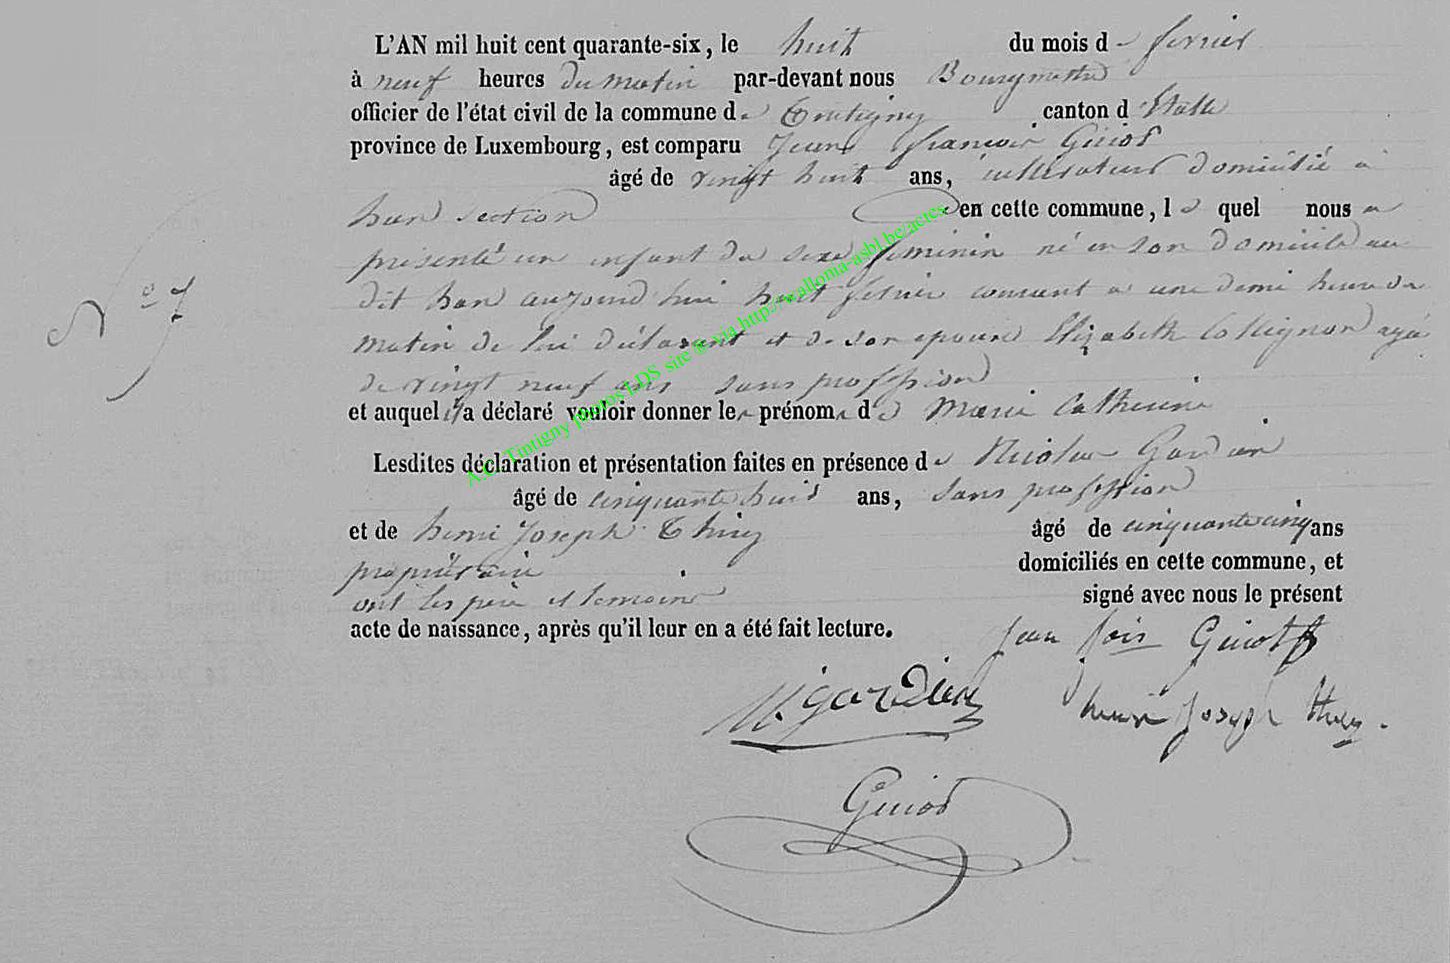 L'AN mil huit cent quarante-six, le huit du mois de fevrier
à neuf heures du matin par-devant nous Bourgmestre
officier de l'état civil de la commune de Tintigny canton d'Etalle
province de Luxembourg, est comparu Jean françois Guiot
âgé de vingt huit ans, cultivateur domicilié a
han section en cette commune, le quel nous a
présenté un enfant du sexe feminin né en son domicile au
dit han aujourd'hui huit fevrier courant a une demi heure du
matin de lui déclarant et de son epouse Elizabeth Collignon agée
de vingt neuf ans sans profession
et auquel il a déclaré vouloir donner les prénoms de Marie Catherine
Lesdites déclaration et présentation faites en présence de Nicolas Gardien
âgé de cinquante huit ans, sans profession
et de henri Joseph Thiry âgé de cinquante cinq ans
propriétaire domiciliés en cette commune, et
ont les père et temoins signé avec nous le présent
acte de naissance, après qu'il leur en a été fait lecture.
N° 7
Jean fois Guiot
N. gardien
henri Joseph thiry.
Guiot
A.C. Tintigny photos LDS site @ via http://wallonia-asbl.be/actes